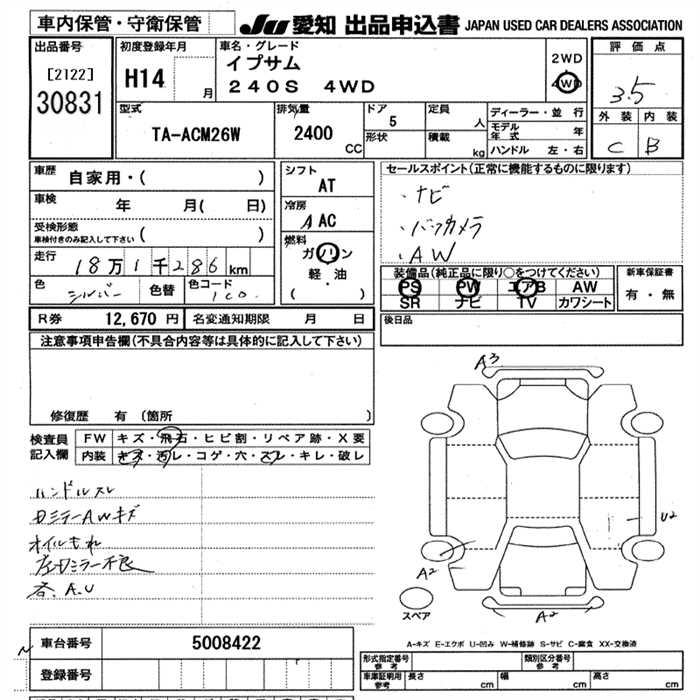 車内保管・守衛保管
JU 愛知 出品申込書 JAPAN USED CAR DEALERS ASSOCIATION
出品番号
[2122]
30831
初度登録年月
H14 月
車名・グレード
イプサム
240S 4WD
2WD
4WD
評価点
3.5
外装 内装
C B
型式
TA-ACM26W
排気量
2400
CC
ドア
5
形状
定員
人
積載
kg
ディーラー・並行
モデル年式 年
ハンドル 左・右
車歴
自家用・( )
車検
年 月( 日)
受検形態
車検付きのみ記入して下さい ( )
走行
18万1千286km
色
シルバー
色替
色コード
1C0.
シフト
AT
冷房
A AC
燃料
ガソリン
軽・油
( )
セールスポイント(正常に機能するものに限ります)
・ナビ
・バックカメラ
・AW
装備品(純正品に限り○をつけてください)
PS PW エアB AW
SR ナビ TV カワシート
新車保証書
有・無
R券 12,670円 名変通知期限 月 日
後日品
注意事項申告欄(不具合内容等は具体的に記入して下さい)
修復歴 有(箇所 )
検査員
記入欄
FW キズ・飛石・ヒビ割・リペア跡・X要
内装 キズ・汚レ・コゲ・穴・スレ・キレ・破レ
ハンドルスレ
ドミラーAWキズ
オイルもれ
左ドミラー不良
各A.U
A3
U2
A2
A2
スペア
A-キズ E-エクボ U-凹み W-補修跡 S-サビ C-腐食 XX-交換済
車台番号 5008422
登録番号
形式指定番号
参考
類別区分番号
参考
車庫証明用
参考
長さ cm
幅 cm
高さ cm